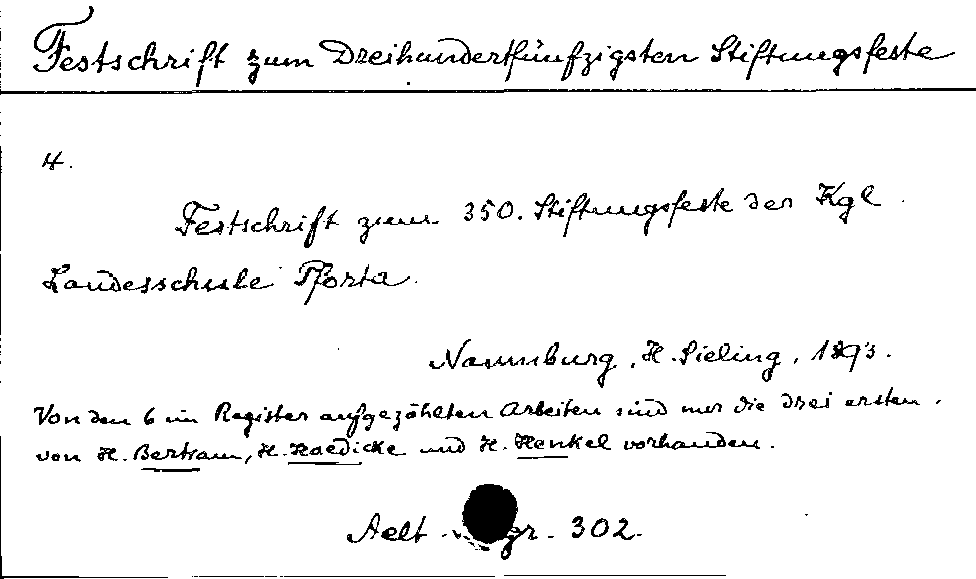 Festschrift zum Dreihundertfünfzigsten Stiftungsfeste
4.
Festschrift zum 350. Stiftungsfeste der Kgl
Landesschule Pforta.
Naumburg, H. Sieling, 1893.
Von den 6 im Register aufgezählten Arbeiten sind nur die drei ersten,
von H. Bertram, H. Haedicke und H. Henkel vorhanden.
Aelt gr. 302.